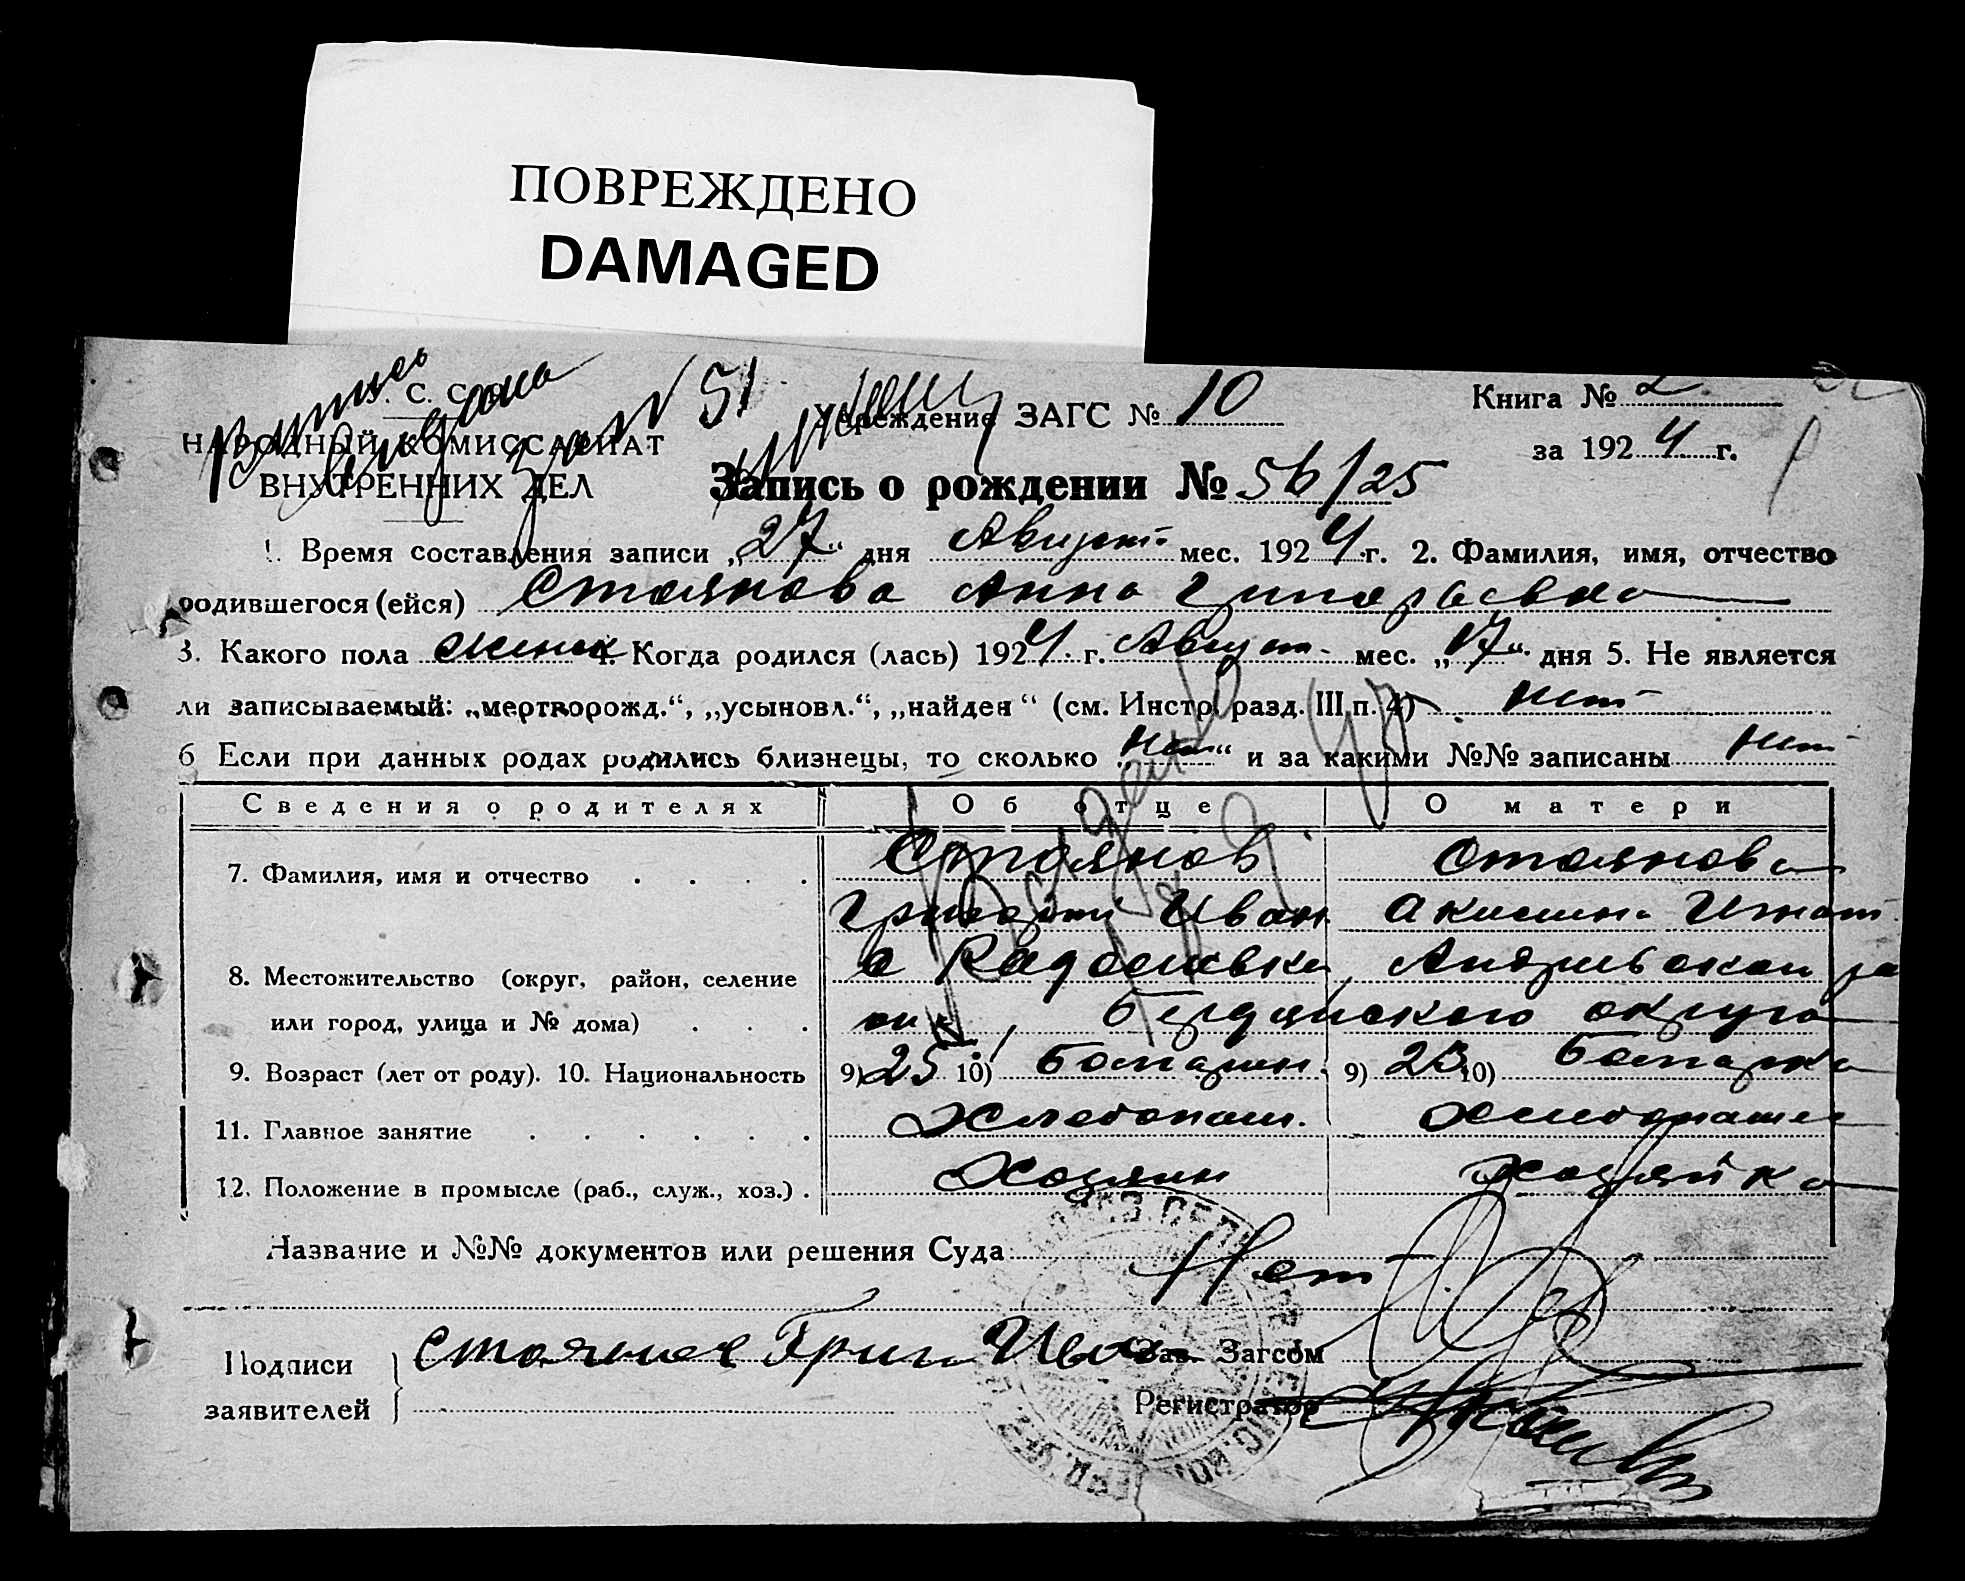 ПОВРЕЖДЕНО
DAMAGED
С. С.
НАРОДНЫЙ КОМИССАРИАТ
ВНУТРЕННИХ ДЕЛ
N 51
Учреждение ЗАГС № 10
Книга № 2
за 1924 г.
Запись о рождении № 56/25
1. Время составления записи „27“ дня Август мес. 1924 г. 2. Фамилия, имя, отчество
родившегося (ейся) Стоянова Анна Григорьевна
3. Какого пола женск 4. Когда родился (лась) 1924. г. Август мес. „17“ дня 5. Не является
ли записываемый: „мертворожд.“, „усыновл.“, „найден“ (см. Инстр. разд. III п. 4) Нет
6 Если при данных родах родились близнецы, то сколько „Нет“ и за какими №№ записаны Нет
Сведения о родителях Об отце О матери
7. Фамилия, имя и отчество Стоянов Стоянова
Григорий Иван
8. Местожительство (округ, район, селение
или город, улица и № дома) Бердянского округа
9. Возраст (лет от роду). 10. Национальность 9) 25 10) Болгарин. 9) 23 10) Болгарка
11. Главное занятие Хлебопаш.
12. Положение в промысле (раб., служ., хоз.) Хозяин Хозяйка
Название и №№ документов или решения Суда Нет
Подписи
заявителей
Стоянов Григ Ив
Зав. Загсом
Регистратор